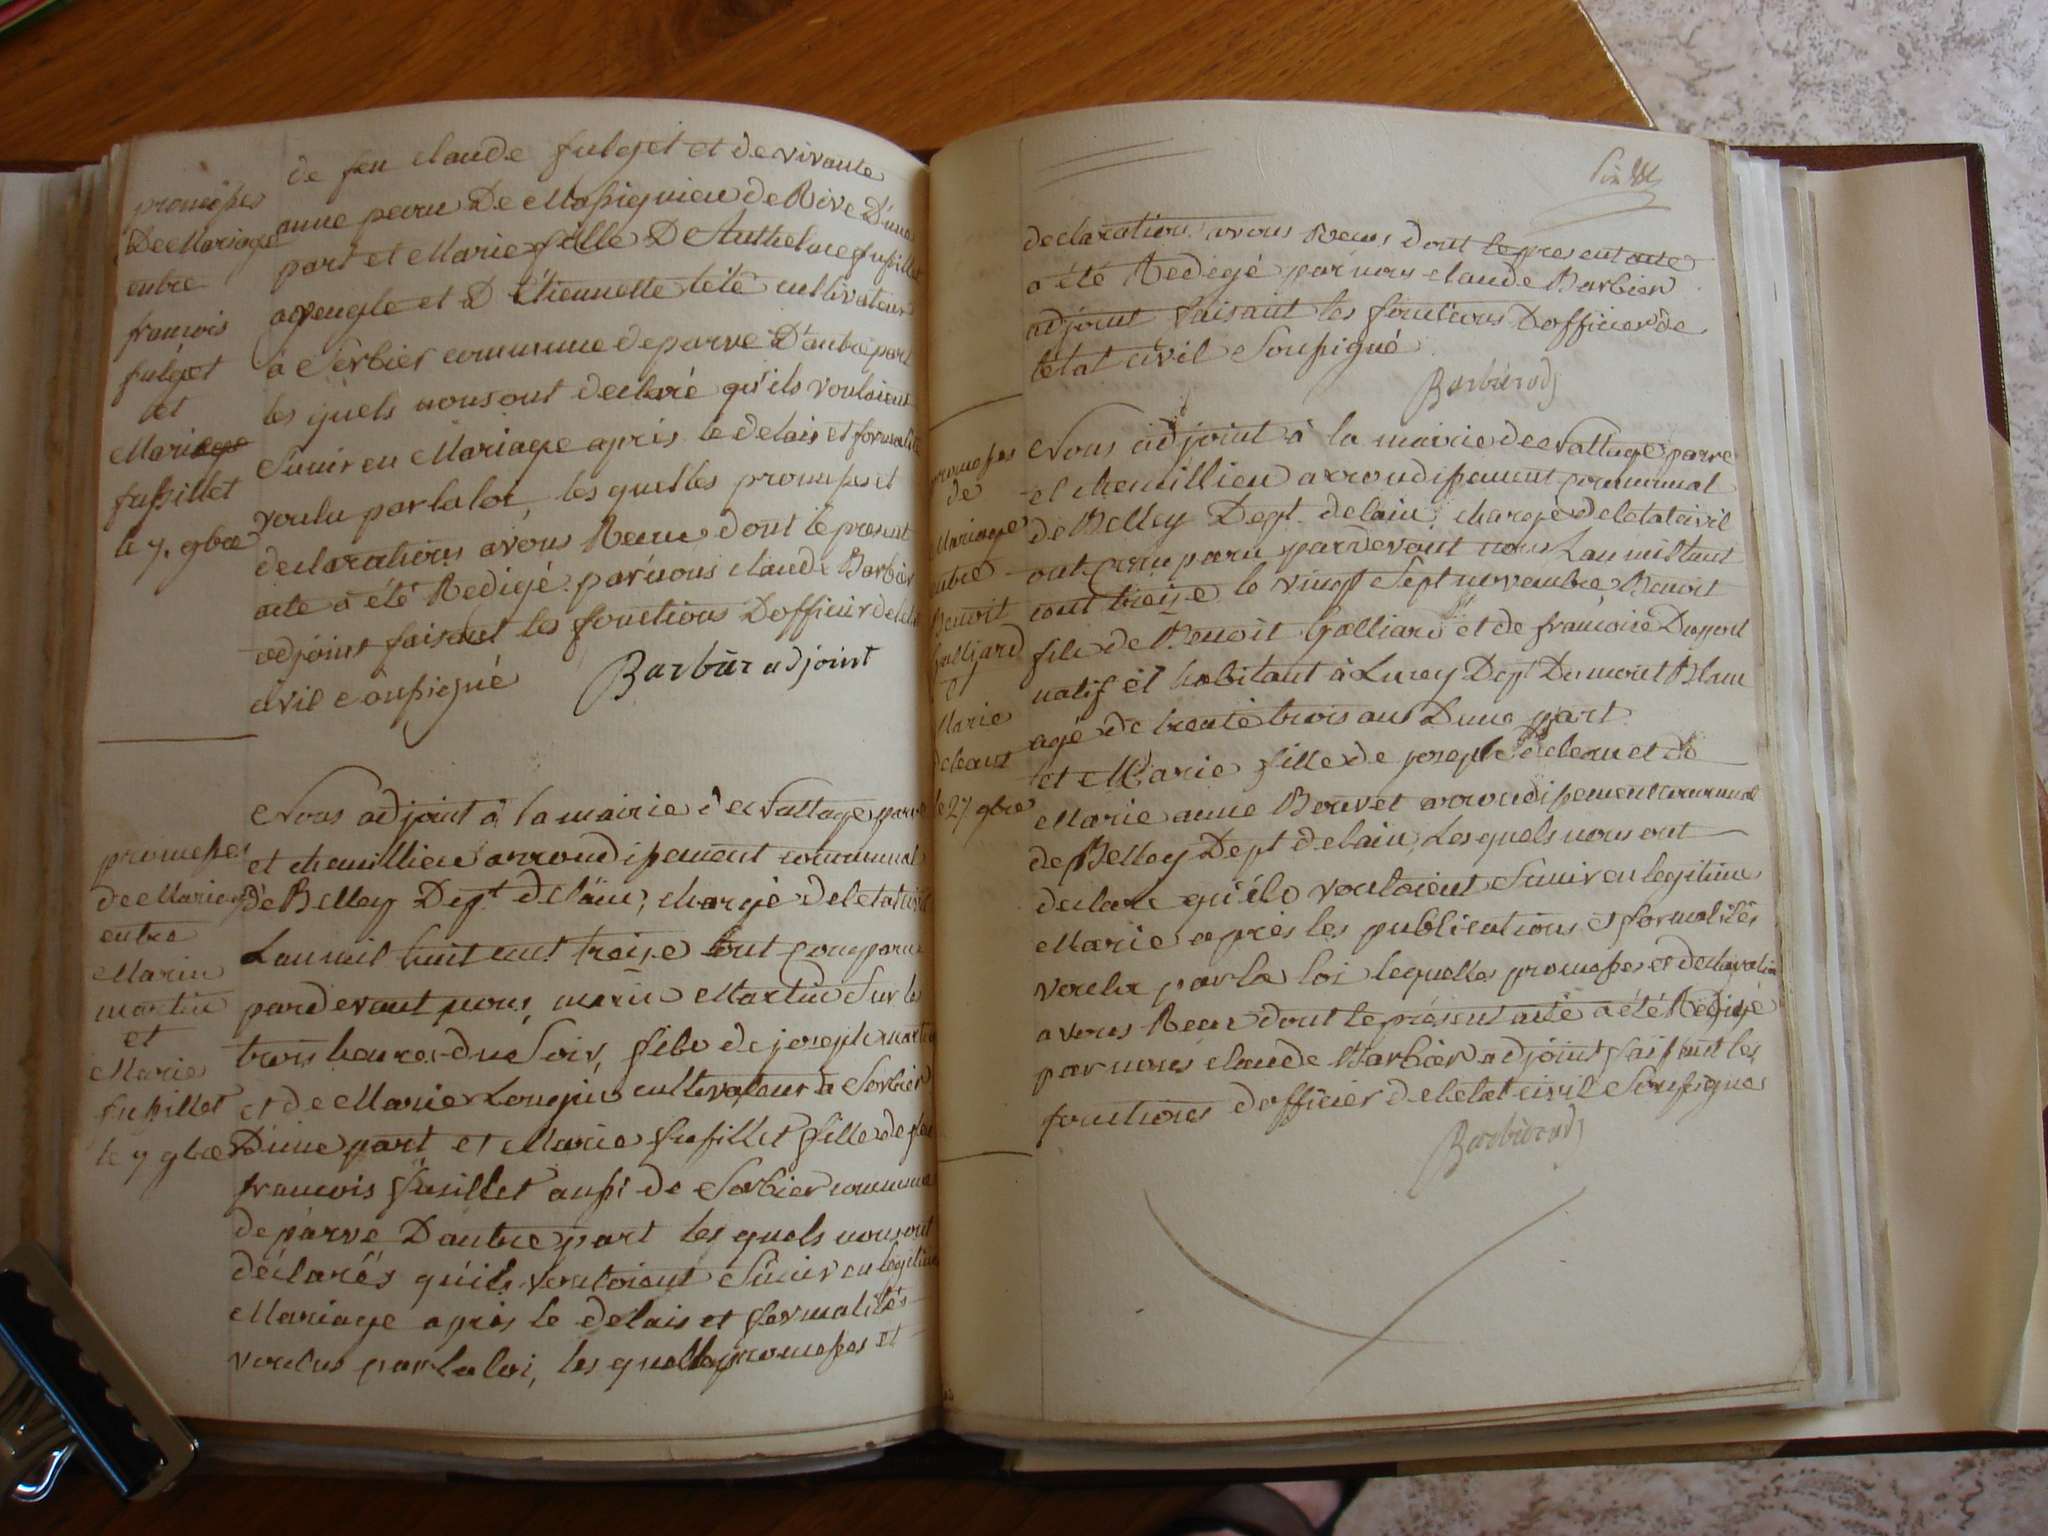 promesses
De Mariage
entre
francois
fulget
et
Mariage
fusillet
le 7. 9bre
de feu claude fulget et de vivante
anne peru De Massignieu de Rive D'une
part et Marie fille D Anthelme fusillet
aveugle et D Etiennette tété cultivateur
à Sorbier commune de parve D'autre part
les quels nous ont declaré qu'ils vouloient
S'unir en Mariage après le delais et formalité
voulu par la loi, les quelles promesses et
declarations avons Recue dont le present
acte a été Redigé par nous claude Barbier
adjoint faisant les fonctions D'officier de letat
civil soussigné
Barbier adjoint
promesses
de Mariage
entre
Marin
martin
et
Marie
fusillet
le 7 9bre
Nous adjoint à la mairie de Nattage parve
et chemillieu arrondissement communal
de Belley Dept. de lain, chargé de letat civil
Lan mil huit cent treize sont comparu
par devant nous, marin Martin Sur les
trois heures du Soir, fils de joseph martin
et de Marie Longin cultivateur à Sorbier
D'une part et Marie fusillet fille de feu
francois fusillet aussi de Sorbier commune
de parve D'autre part les quels nous ont
déclarés qu'ils vouloient S'unir en legitime
Mariage après le delais et formalités
voulus par la loi, les quelles promesses et
declarations avons Recus dont le present acte
a été Redigé par nous claude Barbier
adjoint faisant les fonctions D'officier de
l'état civil Soussigné
Barbier adj
promesses
de
Mariage
entre
Benoit
Galliard
et
Marie
le 27 9bre
Nous adjoint à la mairie de Nattage parve
et chemillieu arrondissement communal
de Belley Dept. de lain, chargé de letat civil
ont comparu par devant nous Lan mil huit
cent treize le vingt Sept novembre Benoit
fils de Benoit Galliard et de francoise Dupont
natif et habitant à Lucey Dept Du mont Blanc
agé de trente trois ans D'une part
et Marie fille de joseph et de
Marie anne Bouvet arrondissement communal
de Belley Dept de lain, Les quels nous ont
declare qu'ils vouloient S'unir en legitime
Marie après les publications et formalités
voulu par la loi lequelles promesses et declaration
avons Recu dont le présent acte a été Redigé
par nous claude Barbier adjoint faissant les
fonctions d'officier de letat civil Soussigné
Barbier adj